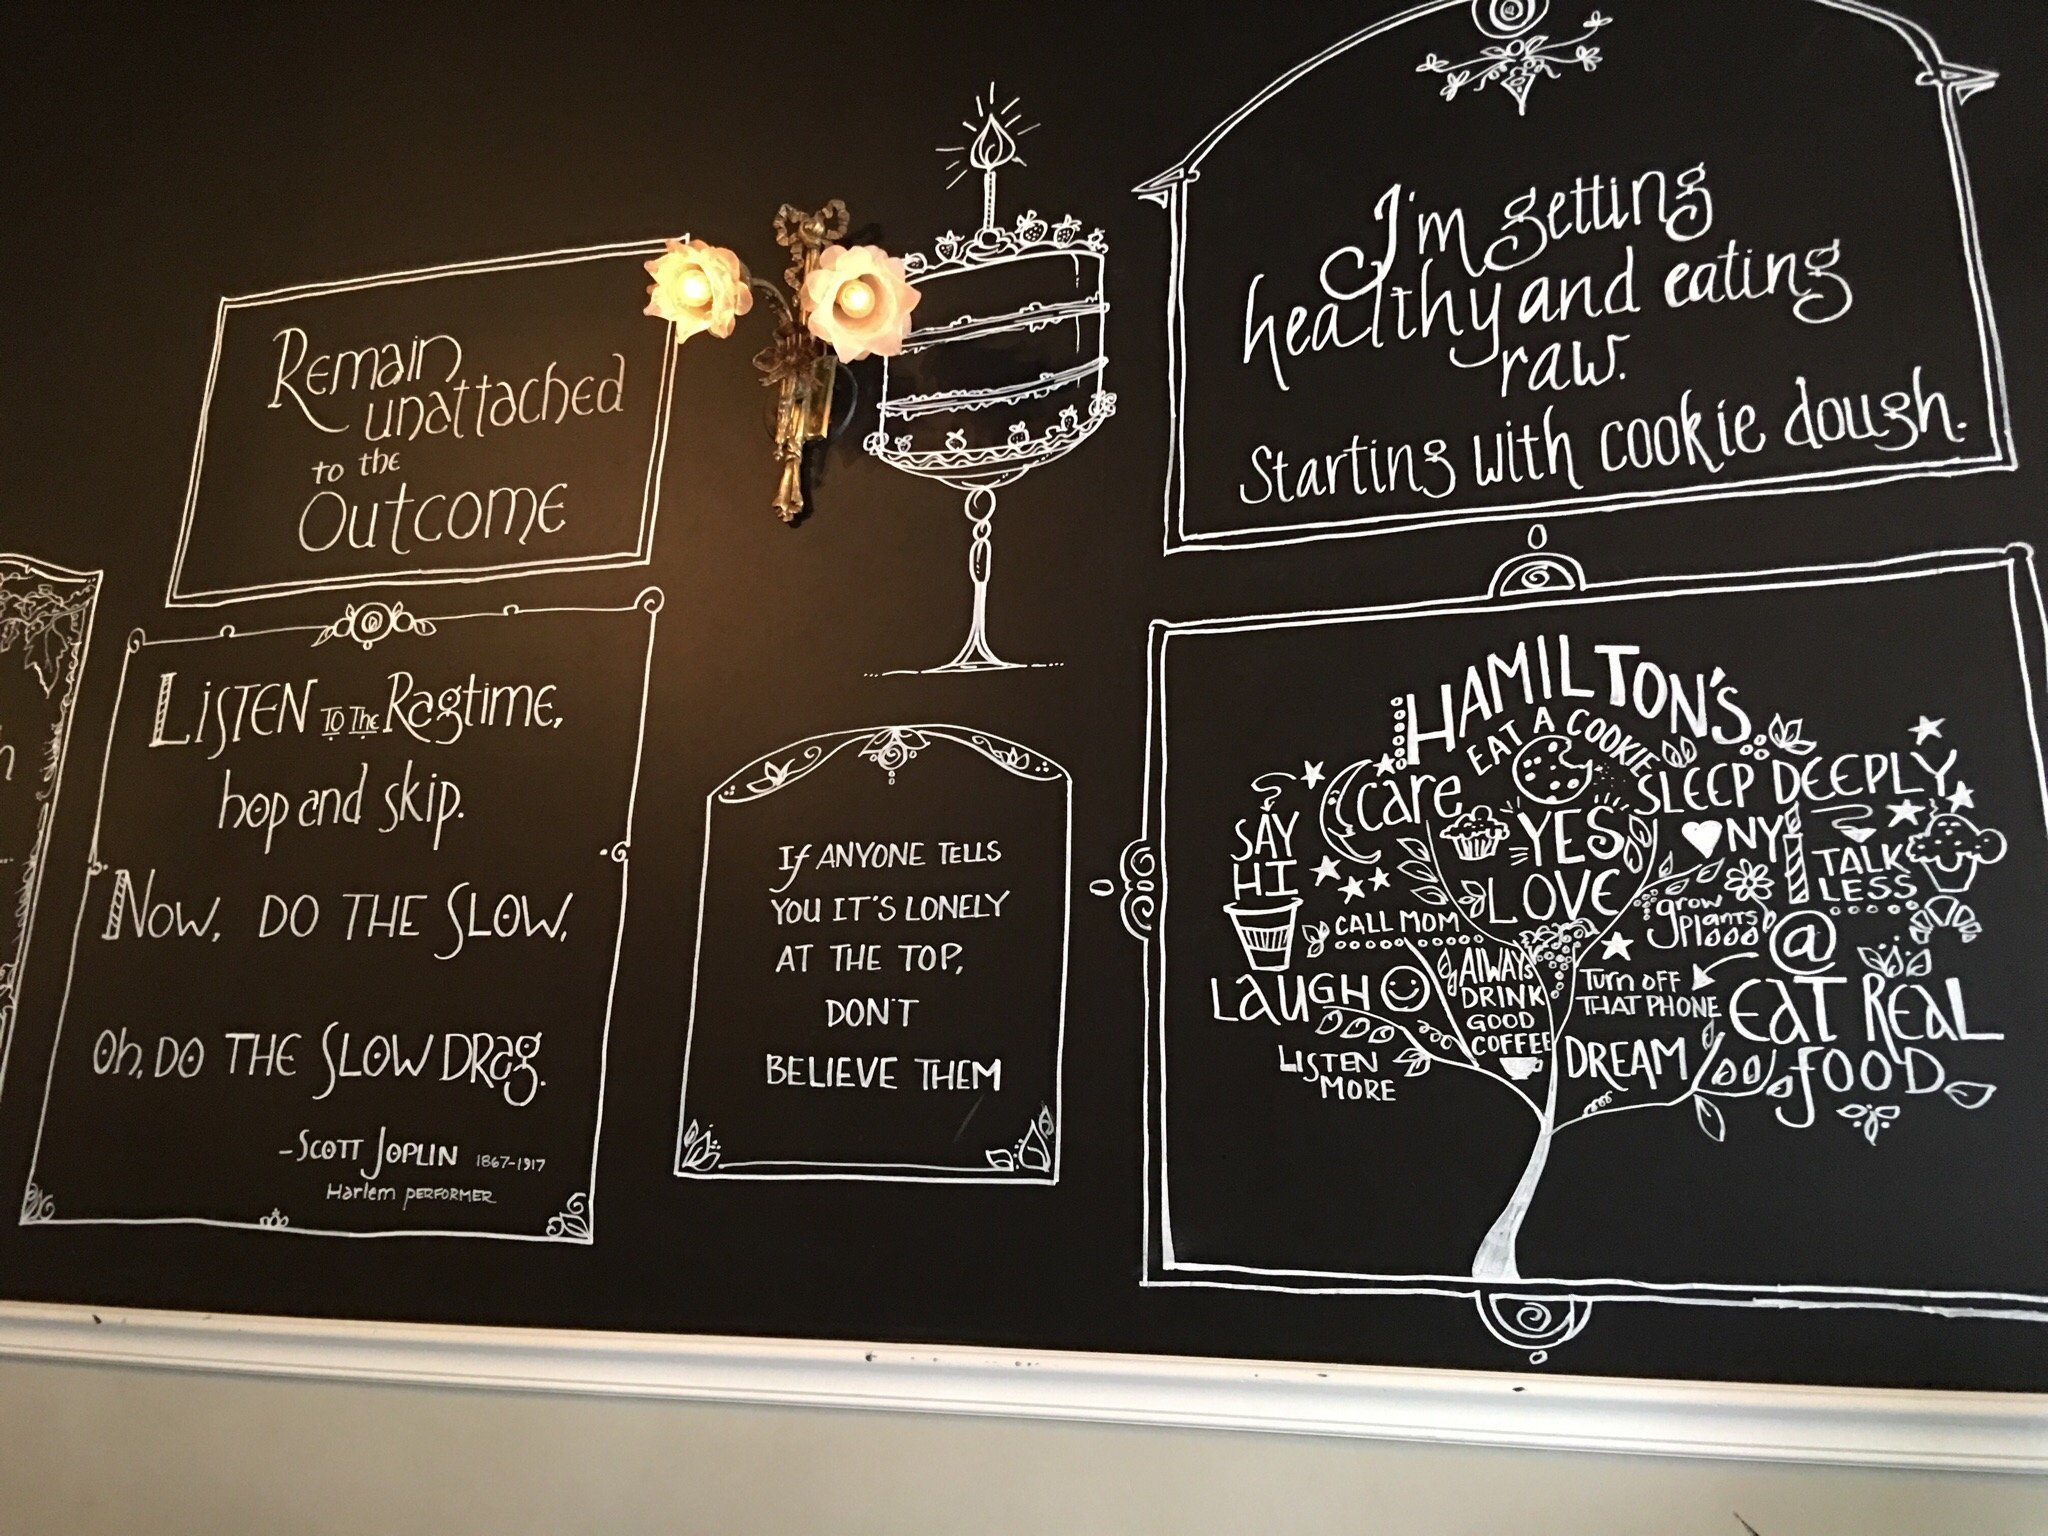 Remain
unattached
to the
Outcome
Listen to the Ragtime,
hop and skip.
Now, do the slow,
Oh, do the slow Drag.
-Scott Joplin 1867-1917
Harlem performer
If ANYONE TELLS
YOU IT'S LONELY
AT THE TOP,
DON'T
BELIEVE THEM
I'm getting
healthy and eating
raw.
Starting with cookie dough.
HAMILTON'S
EAT A COOKIE
Care
SLEEP DEEPLY
SAY
HI
YES
NY
TALK
LESS
LOVE
CALL MOM
grow
plants
@
LAUGH
ALWAYS
DRINK
GOOD
COFFEE
Turn OFF
THAT PHONE
EAT REAL
FOOD
LISTEN
MORE
DREAM